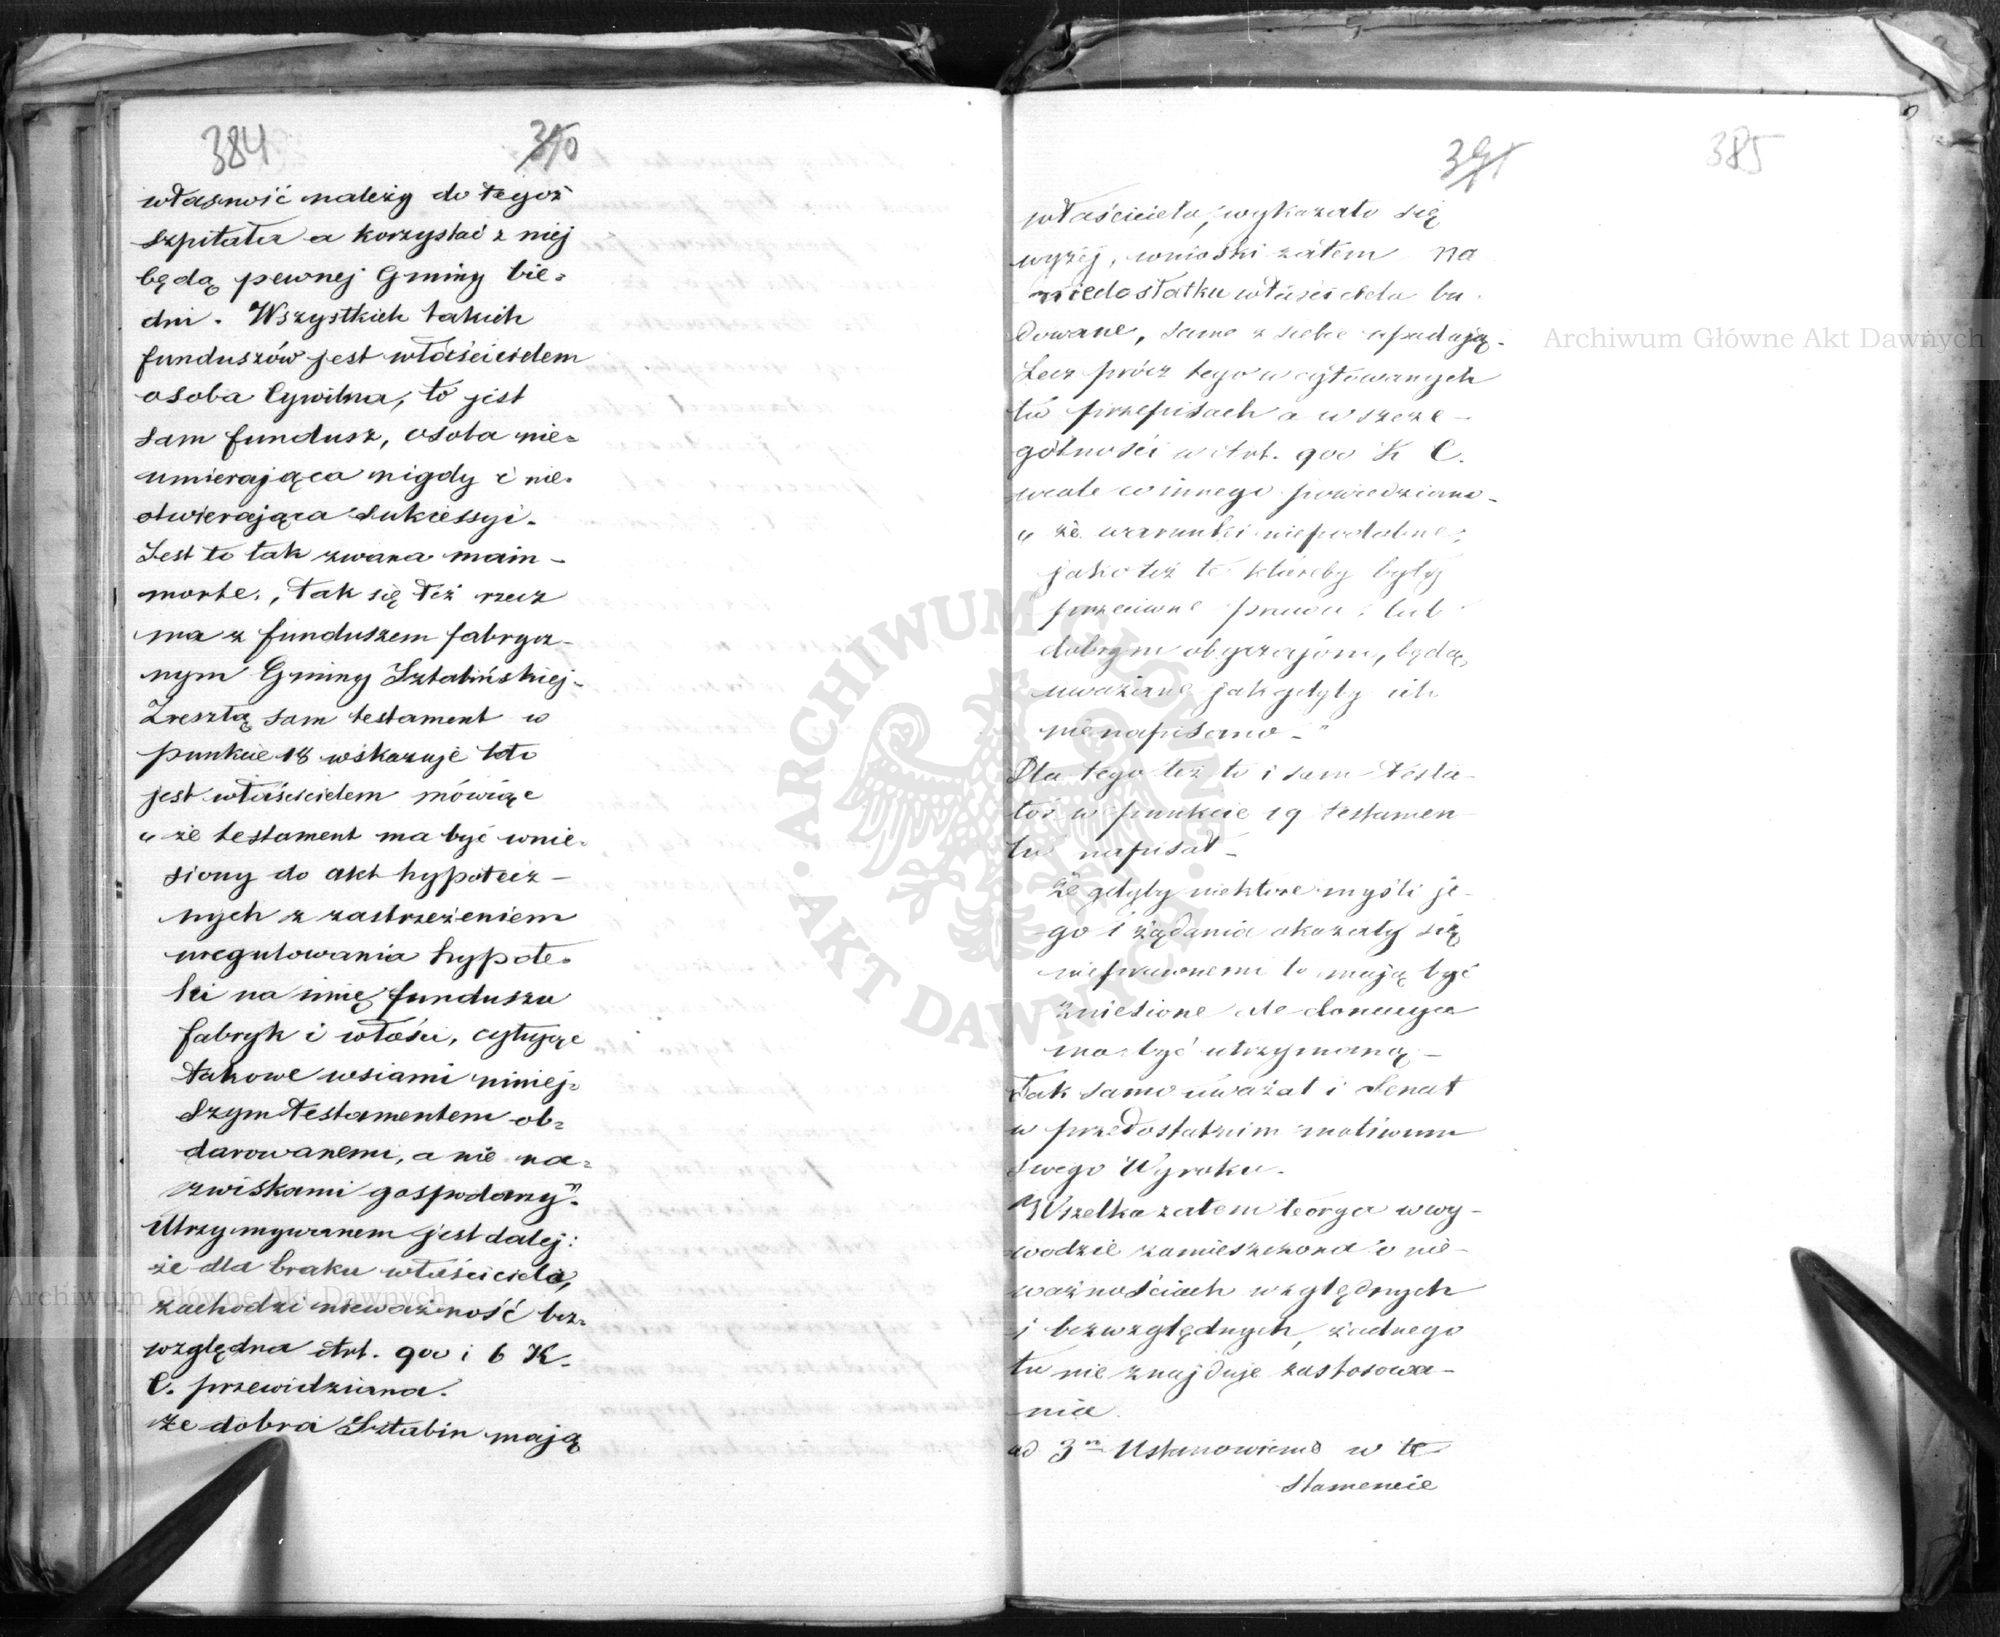 384 390
własność należy do tegoż
szpitala a korzystać z niej
będą pewnej Gminy bie=
dni. Wszystkich takich
funduszów jest właścicielem
osoba Cywilna, to jest
sam fundusz, osoba nie=
umierająca nigdy i nie=
otwierająca sukcessyi.
Jest to tak zwana main-
morte., tak się też rzecz
ma z funduszem fabrycz-
nym Gminy Sztabińskiej-
Zresztą sam testament w
punkcie 18 wskazuje kto
jest właścicielem mówiąc
„ że testament ma być wnie=
siony do akt hypotecz-
nych z zastrzeżeniem
uregulowania hypote=
ki na imię funduszu
fabryk i włości, cytując
takowe wsiami niniej=
szym testamentem ob=
darowanemi, a nie na=
zwiskami gospodarzy".
Utrzymywanem jest dalej:
że dla braku właściciela,
zachodzi nieważność bez=
względna Art. 900 i 6 K.
C. przewidziana.
Że dobra Sztabin mają
391 385
właściciela, wykazało się
wyżej, wnioski zatem na
niedostatku właściciela bu-
dowane, same z siebie upadają.
Lecz prócz tego w cytowanych
tu przepisach a w szcze-
gólności w Art. 900 K C.
wcale co innego powiedziano-
„ że warunki niepodobne,
jako też te któreby były
przeciwne prawu, lub
dobrym obyczajom, będą
uważane jak gdyby ich
nie napisano-"
Dla tego też to i sam testa-
tor w punkcie 19 testamen-
tu napisał-
że gdyby niektóre myśli je-
go i żądania okazały się
nieprawnemi to mają być
zniesione ale donacya
ma być utrzymaną-
Tak samo uważał i Senat
w przedostatnim motiwum
swego Wyroku.
Wszelka zatem teorya w wy-
wodzie zamieszczona o nie-
ważnościach względnych
i bezwzględnych, żadnego
tu nie znajduje zastosowa-
nia.
ad 3m Ustanowiena w te
stamencie
Archiwum Główne Akt Dawnych
Archiwum Główne Akt Dawnych
ARCHIWUM GŁÓWNE AKT DAWNYCH